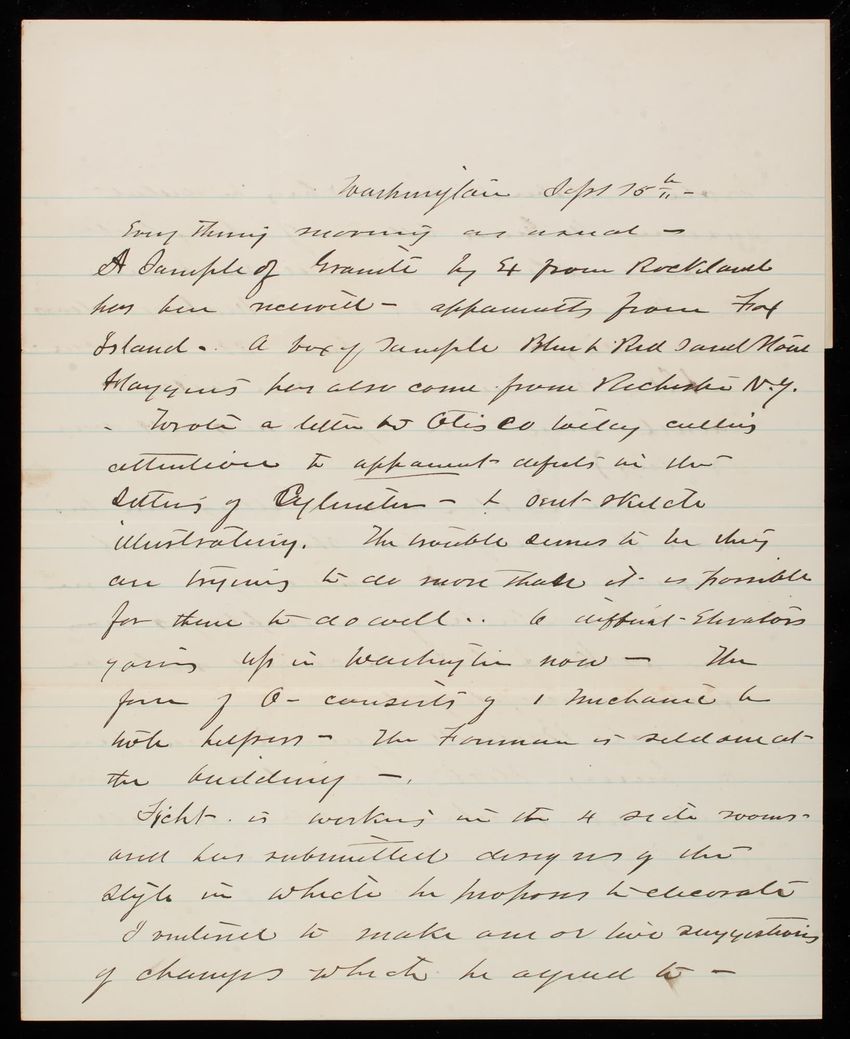 Washington Sept 15th -
Every thing moving as usual -
A Sample of Granite by Ex from Rockland
has been received - apparently from Fox
Island - A box of Sample Blue & Red Sand Stone
has also come from Rochester N.Y.
- Wrote a letter to Otis Co today calling
attention to apparent defects in the
Setting of Cylinder - & sent sketch
illustrating. The trouble seems to be they
are trying to do more than it is possible
for them to do well .. 6 different Elevators
going up in Washington now - The
force of O- consists of 1 mechanic &
helpers - The Foreman is seldom at
the building -.
Ficht is working in the 4 side rooms -
and has submitted designs of the
style in which he proposes to decorate
I ventured to make one or two suggestions
of changes which he agreed to -